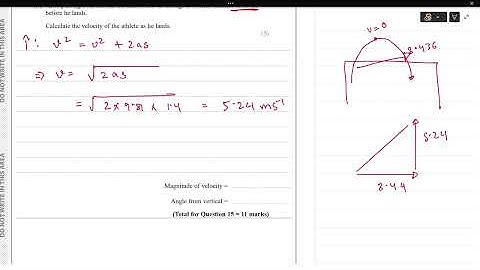 before he lands.
Calculate the velocity of the athlete as he lands.
(5)
↑: v² = u² + 2as
⇒ v = √2as
= √2 × 9.81 × 1.4 = 5.24 ms⁻¹
Magnitude of velocity =
Angle from vertical =
(Total for Question 15 = 11 marks)
DO NOT WRITE IN THIS AREA
DO NOT WRITE IN THIS AREA
v=0
8.436
5.24
8.44